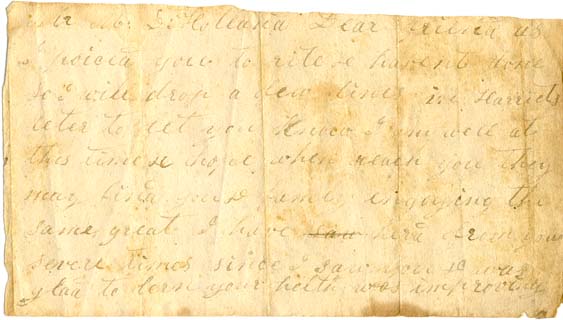 Dear Friend as
you to rite & havent done
so I will drop a few lines in Harriets
leter to let you know I am well at
this time & hope when reach you they
may find you & family engoying the
same great I have saw herd from you
severl times since I saw you & was
glad to lern your helth was improving